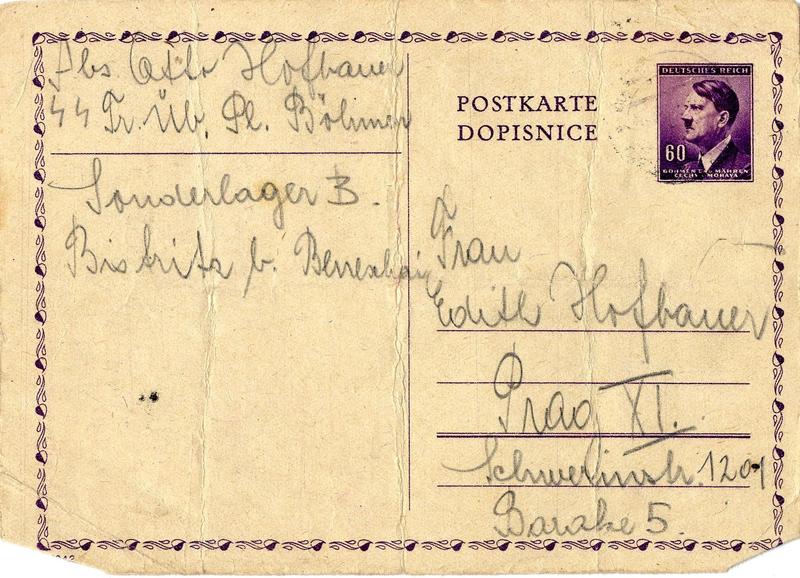 Abs Otto Hofbauer
SS Tr. Üb. Pl. Böhmen
Sonderlager B.
Bistritz b. Beneschau
POSTKARTE
DOPISNICE
DEUTSCHES REICH
60
BÖHMEN UND MÄHREN
ČECHY A MORAVA
Frau
Edith Hofbauer
Prag XI.
Schwerinstr. 1201
Baracke 5.